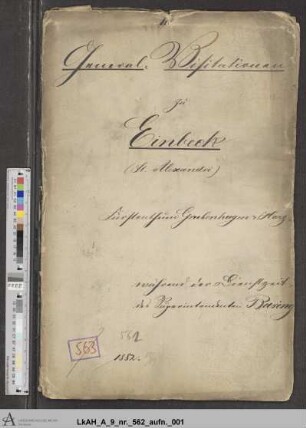 General-Visitationen
zu
Einbeck
(St. Alexandri)
Fürstenthum Grubenhagen
während der Dienstzeit
des Superintendenten
562
563
1852
LkAH_A_9_nr._562_aufn._001